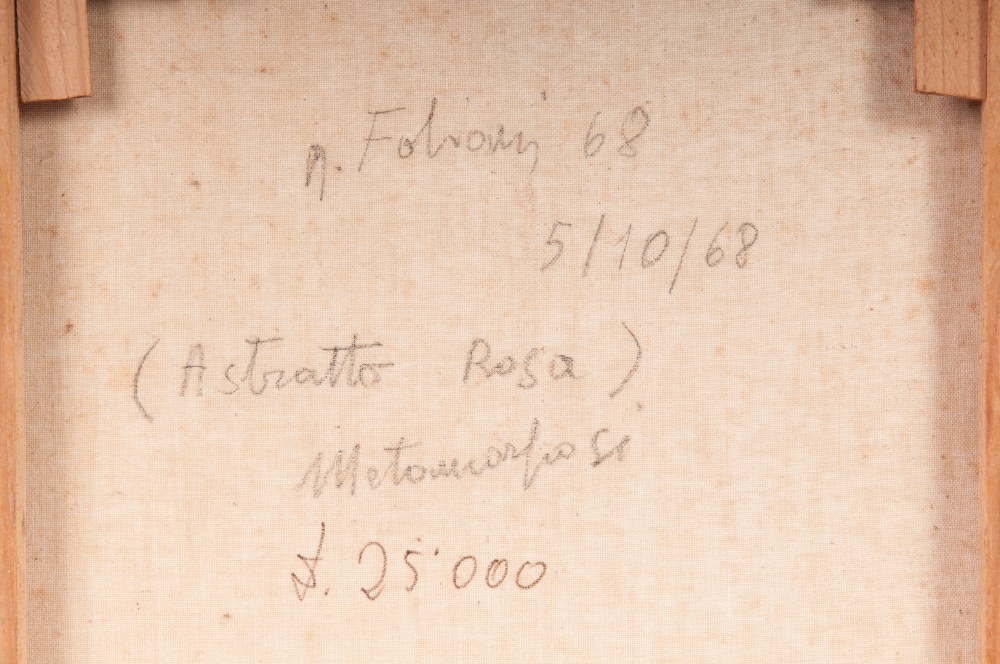 68
5/10/68
(Astratto Rosa)
Metamorfosi
£. 25.000